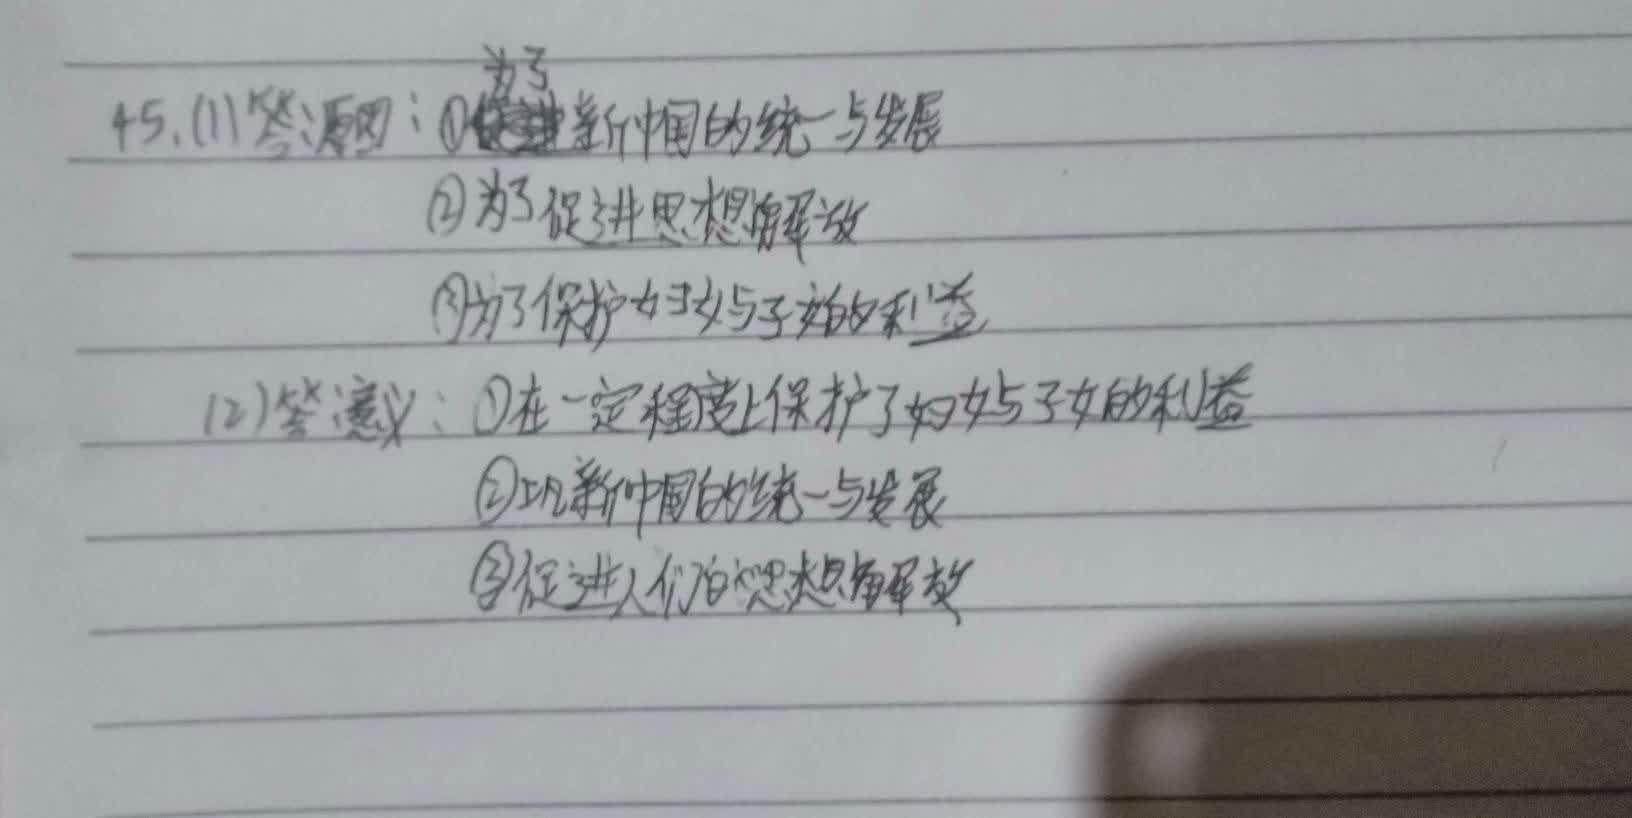 为了
45.(1)答:原因:①新中国的统一与发展
②为了促进思想解放
③为了保护妇女与子女的利益
(2)答:意义:①在一定程度上保护了妇女与子女的利益
②巩新中国的统一与发展
③促进人们的思想解放